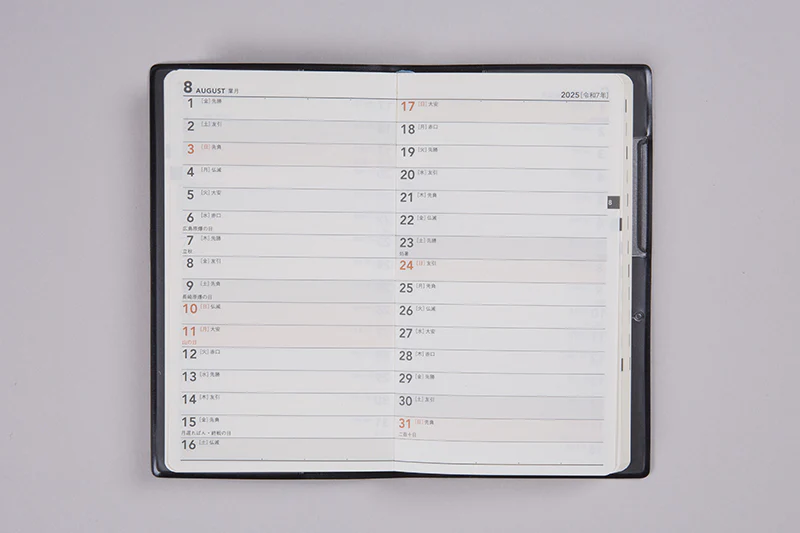 8 AUGUST 葉月
1 [金] 先勝
2 [土] 友引
3 [日] 先負
4 [月] 仏滅
5 [火] 大安
6 [水] 赤口
広島原爆の日
7 [木] 先勝
立秋
8 [金] 友引
9 [土] 先負
長崎原爆の日
10 [日] 仏滅
11 [月] 大安
山の日
12 [火] 赤口
13 [水] 先勝
14 [木] 友引
15 [金] 先負
月遅れぼん・終戦の日
16 [土] 仏滅
2025 [令和7年]
17 [日] 大安
18 [月] 赤口
19 [火] 先勝
20 [水] 友引
21 [木] 先負
22 [金] 仏滅
23 [土] 先勝
処暑
24 [日] 友引
25 [月] 先負
26 [火] 仏滅
27 [水] 大安
28 [木] 赤口
29 [金] 先勝
30 [土] 友引
31 [日] 先負
二百十日
8